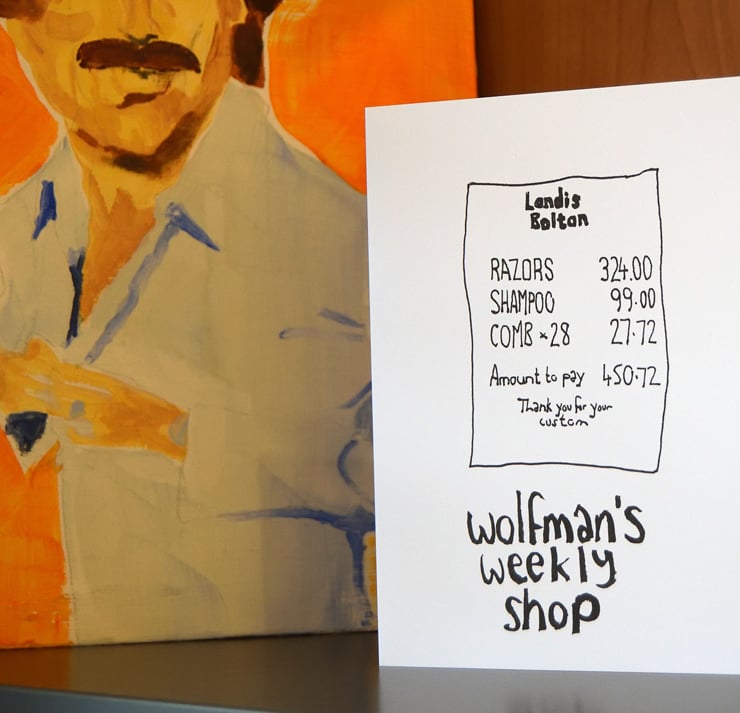 Landis
Boltan
RAZORS 324.00
SHAMPOO 99.00
COMB ×28 27.72
Amount to pay 450.72
Thank you for your
custom
wolfman's
weekly
shop